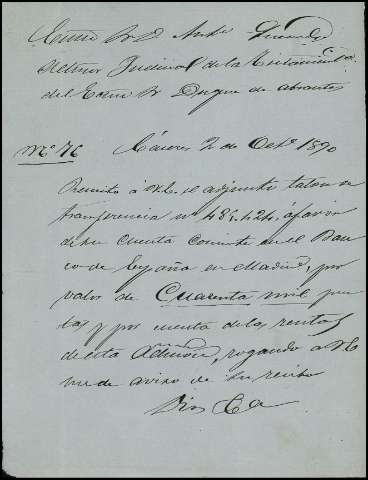 Excmo Sr D. Andrs
Admor Judicial de la Testamentía
del Excmo Sr Duque de Abrantes
No 76 Cáceres 2 de Octe 1890
Remito á V. el adjunto talon de
transferencia no 481.424, á favor
de su cuenta corriente en el Ban
co de España en Madrid, por
valor de Cuarenta mil pese
tas y por cuenta de las rentas
de esta Admon, rogando á V.
me dé aviso de su recibo
Dios &a